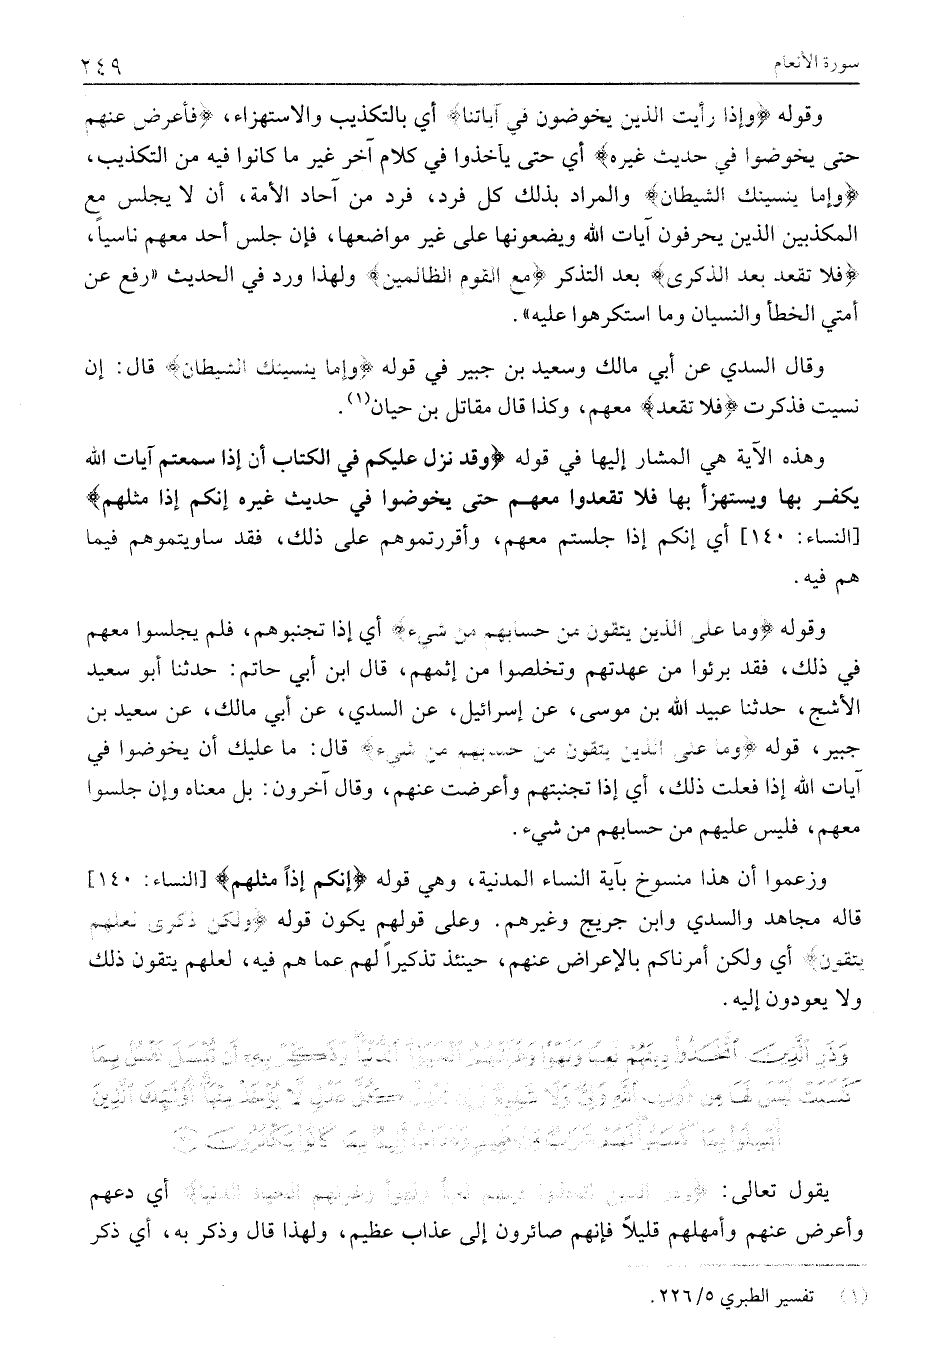 سورة الأنعام
٢٤٩
وقوله ﴿وإذا رأيت الذين يخوضون في آياتنا﴾ أي بالتكذيب والاستهزاء، ﴿فأعرض عنهم
حتى يخوضوا في حديث غيره﴾ أي حتى يأخذوا في كلام آخر غير ما كانوا فيه من التكذيب،
﴿وإما ينسينك الشيطان﴾ والمراد بذلك كل فرد، فرد من آحاد الأمة، أن لا يجلس مع
المكذبين الذين يحرفون آيات الله ويضعونها على غير مواضعها، فإن جلس أحد معهم ناسياً،
﴿فلا تقعد بعد الذكرى﴾ بعد التذكر ﴿مع القوم الظالمين﴾ ولهذا ورد في الحديث «رفع عن
أمتي الخطأ والنسيان وما استكرهوا عليه».
وقال السدي عن أبي مالك وسعيد بن جبير في قوله ﴿وإما ينسينك الشيطان﴾ قال: إن
نسيت فذكرت ﴿فلا تقعد﴾ معهم، وكذا قال مقاتل بن حيان(١).
وهذه الآية هي المشار إليها في قوله ﴿وقد نزل عليكم في الكتاب أن إذا سمعتم آيات الله
يكفر بها ويستهزأ بها فلا تقعدوا معهم حتى يخوضوا في حديث غيره إنكم إذا مثلهم﴾
[النساء: ١٤٠] أي إنكم إذا جلستم معهم، وأقررتموهم على ذلك، فقد ساويتموهم فيما
هم فيه.
وقوله ﴿وما على الذين يتقون من حسابهم من شيء﴾ أي إذا تجنبوهم، فلم يجلسوا معهم
في ذلك، فقد برئوا من عهدتهم وتخلصوا من إثمهم، قال ابن أبي حاتم: حدثنا أبو سعيد
الأشج، حدثنا عبيد الله بن موسى، عن إسرائيل، عن السدي، عن أبي مالك، عن سعيد بن
جبير، قوله ﴿وما على الذين يتقون من حسابهم من شيء﴾ قال: ما عليك أن يخوضوا في
آيات الله إذا فعلت ذلك، أي إذا تجنبتهم وأعرضت عنهم، وقال آخرون: بل معناه وإن جلسوا
معهم، فليس عليهم من حسابهم من شيء.
وزعموا أن هذا منسوخ بآية النساء المدنية، وهي قوله ﴿إنكم إذاً مثلهم﴾ [النساء: ١٤٠]
قاله مجاهد والسدي وابن جريج وغيرهم. وعلى قولهم يكون قوله ﴿ولكن ذكرى لعلهم
يتقون﴾ أي ولكن أمرناكم بالإعراض عنهم، حينئذ تذكيراً لهم عما هم فيه، لعلهم يتقون ذلك
ولا يعودون إليه.
وَذَرِ الَّذِينَ اتَّخَذُوا دِينَهُمْ لَعِبًا وَلَهْوًا وَغَرَّتْهُمُ الْحَيَاةُ الدُّنْيَا وَذَكِّرْ بِهِ أَن تُبْسَلَ نَفْسٌ بِمَا
يقول تعالى: أي دعهم
وأعرض عنهم وأمهلهم قليلاً فإنهم صائرون إلى عذاب عظيم، ولهذا قال وذكر به، أي ذكر
(١) تفسير الطبري ٢٢٦/٥.